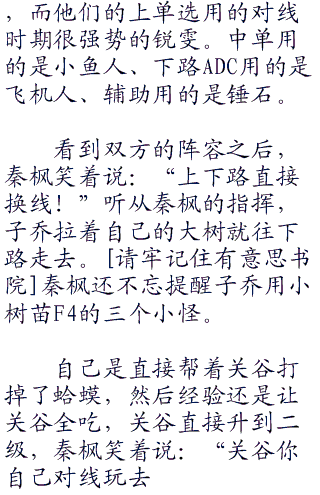 ，而他们的上单选用的对线
时期很强势的锐雯。中单用
的是小鱼人、下路ADC用的是
飞机人、辅助用的是锤石。
看到双方的阵容之后，
秦枫笑着说：“上下路直接
换线！”听从秦枫的指挥，
子乔拉着自己的大树就往下
路走去。[请牢记住有意思书
院]秦枫还不忘提醒子乔用小
树苗F4的三个小怪。
自己是直接帮着关谷打
掉了蛤蟆，然后经验还是让
关谷全吃，关谷直接升到二
级，秦枫笑着说：“关谷你
自己对线玩去